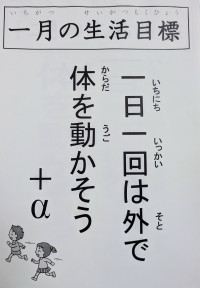 いちがつ せいかつもくひょう
一月の生活目標
いちにち いっかい そと
一日一回は外で
からだ うご
体を動かそう
＋α